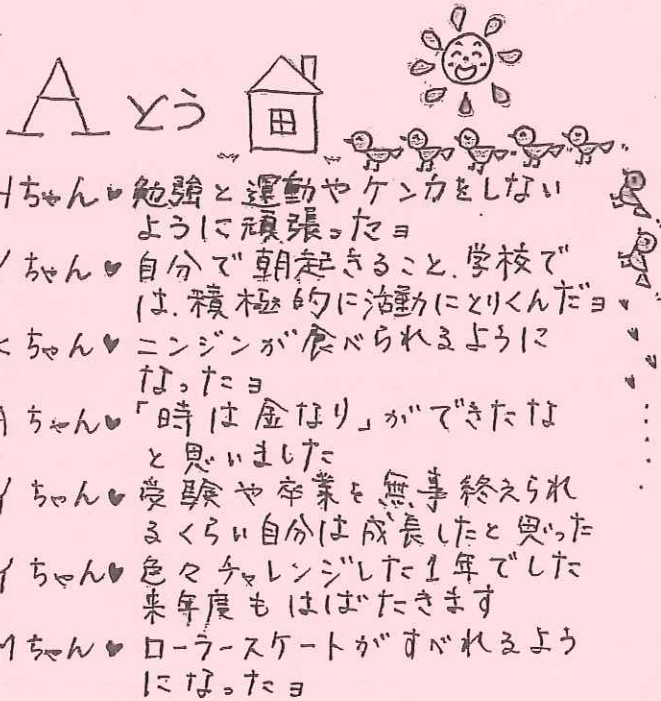 Aとう
Hちゃん♥勉強と運動やケンカをしない
ように頑張ったヨ
ちゃん♥自分で朝起きること、学校で
は、積極的に活動にとりくんだヨ
ちゃん♥ニンジンが食べられるように
なったヨ
Aちゃん♥「時は金なり」ができたな
と思いました
ちゃん♥受験や卒業を無事終えられ
るくらい自分は成長したと思った
ちゃん♥色々チャレンジした1年でした
来年度もはばたきます
Mちゃん♥ローラースケートがすべれるよう
になったヨ